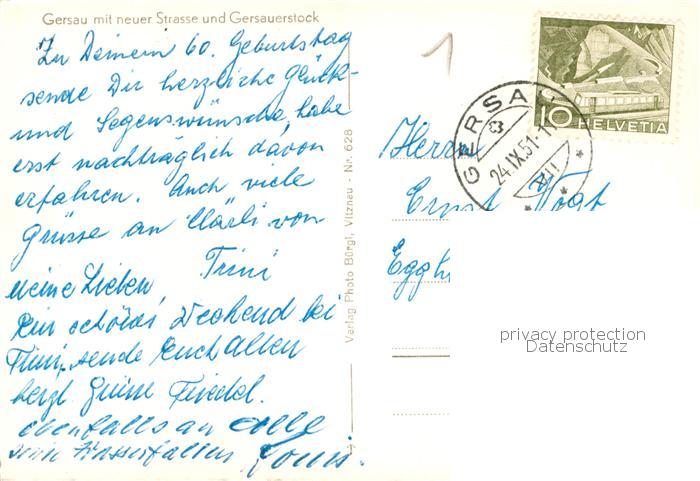 Gersau mit neuer Strasse und Gersauerstock
Zu Deinem 60. Geburtstag
sende Dir herzliche Glück-
und Segenswünsche, habe
erst nachträglich davon
erfahren. Auch viele
Grüsse an Clärli von
Trini
Meine Lieben,
Ein schönes Weekend bei
Trini, sende Euch allen
herzl. Grüsse Friedel.
ebenfalls an alle
vom Wasserfallen
Verlag Photo Bürgi, Vitznau - Nr. 628
1
10 HELVETIA
GERSAU
24.IX.51-11
VII
Herrn
Ernst Vogt
Eggh
privacy protection
Datenschutz